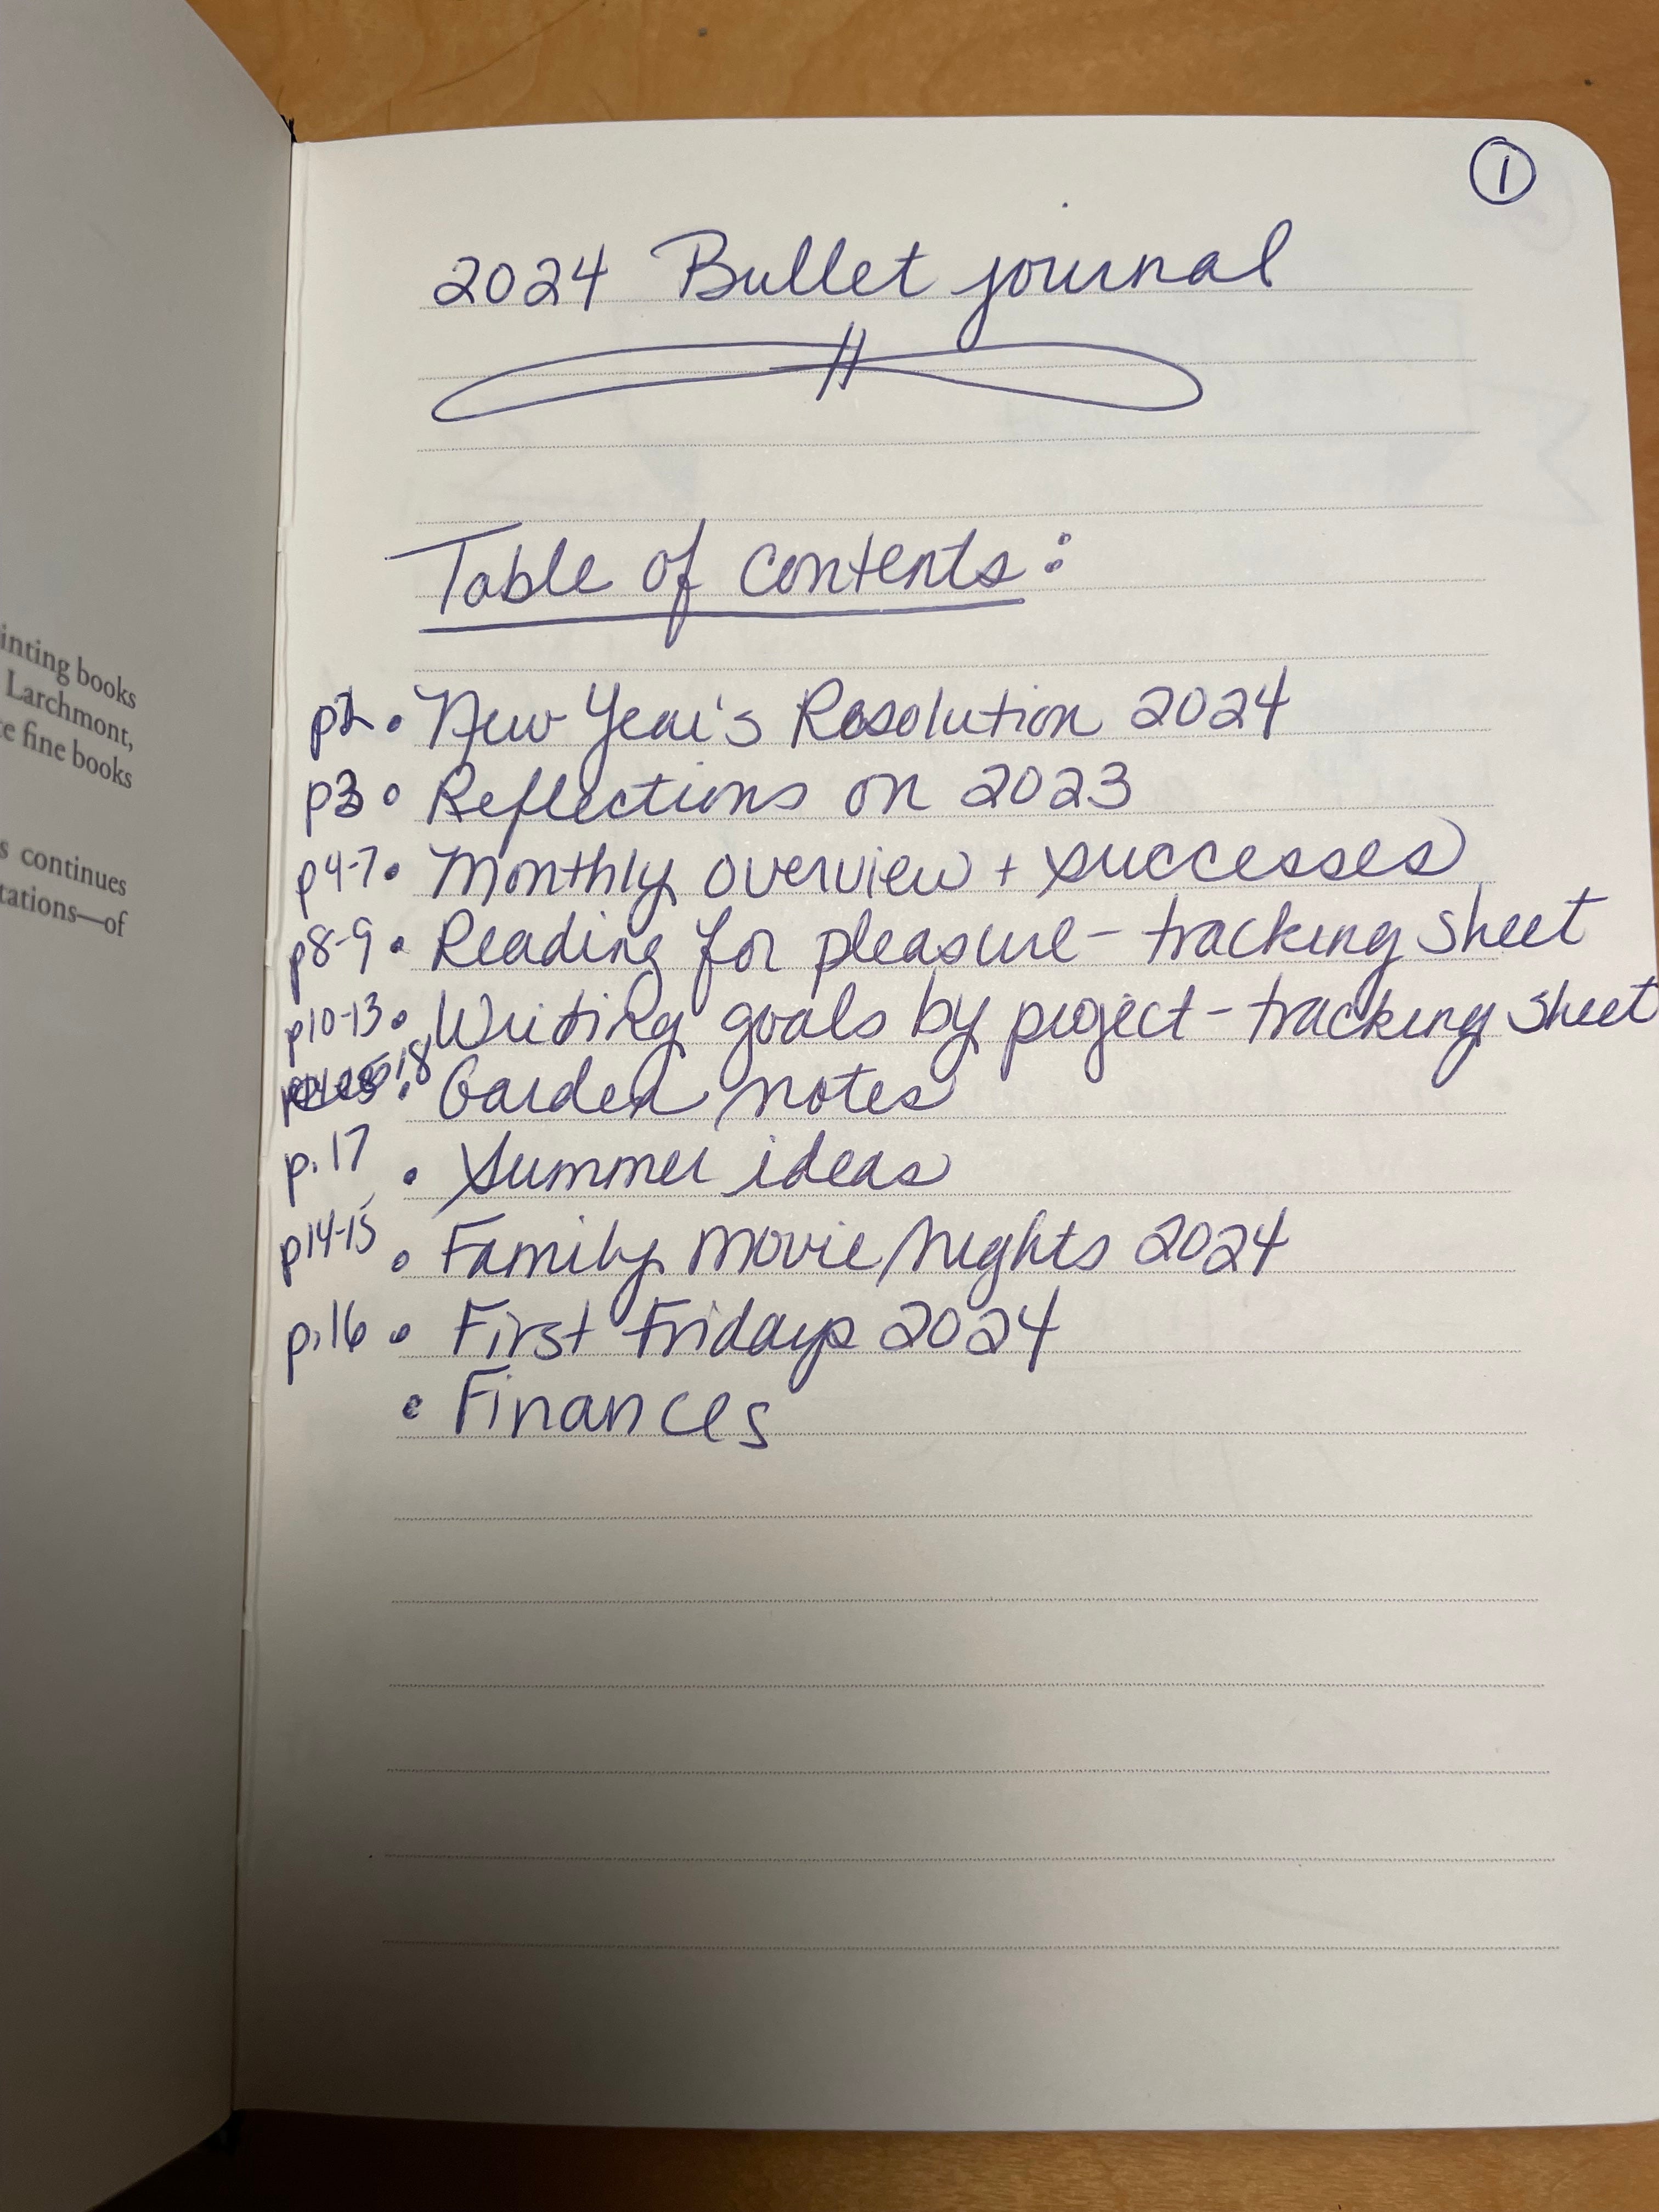 inting books
Larchmont,
te fine books
s continues
tations—of
1
2024 Bullet journal
Table of contents:
p2 • New Year's Resolution 2024
p3 • Reflections on 2023
p4-7 • Monthly overview + successes
p8-9 • Reading for pleasure - tracking sheet
p10-13 • Writing goals by project - tracking sheet
18 • Garden notes
p.17 • Summer ideas
p14-15 • Family Movie Nights 2024
p.16 • First Fridays 2024
• Finances